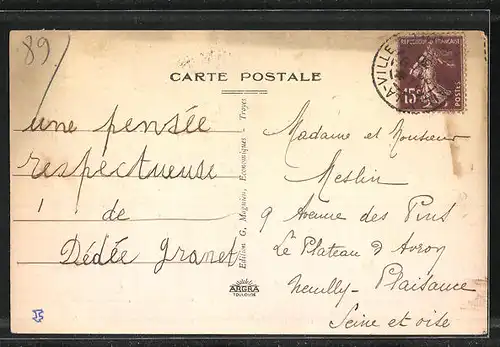 89
CARTE POSTALE
A-VILLE
REPUBLIQUE FRANÇAISE
15c
POSTES
une pensée
respectueuse
de
Dédée Granet
Edition G. Mognien, Economiques - Troyes
ARGRA
TOULOUSE
Madame et Monsieur
Meslin
9 Avenue des Pins
Le Plateau d'Avron
Neuilly-Plaisance
Seine et oise